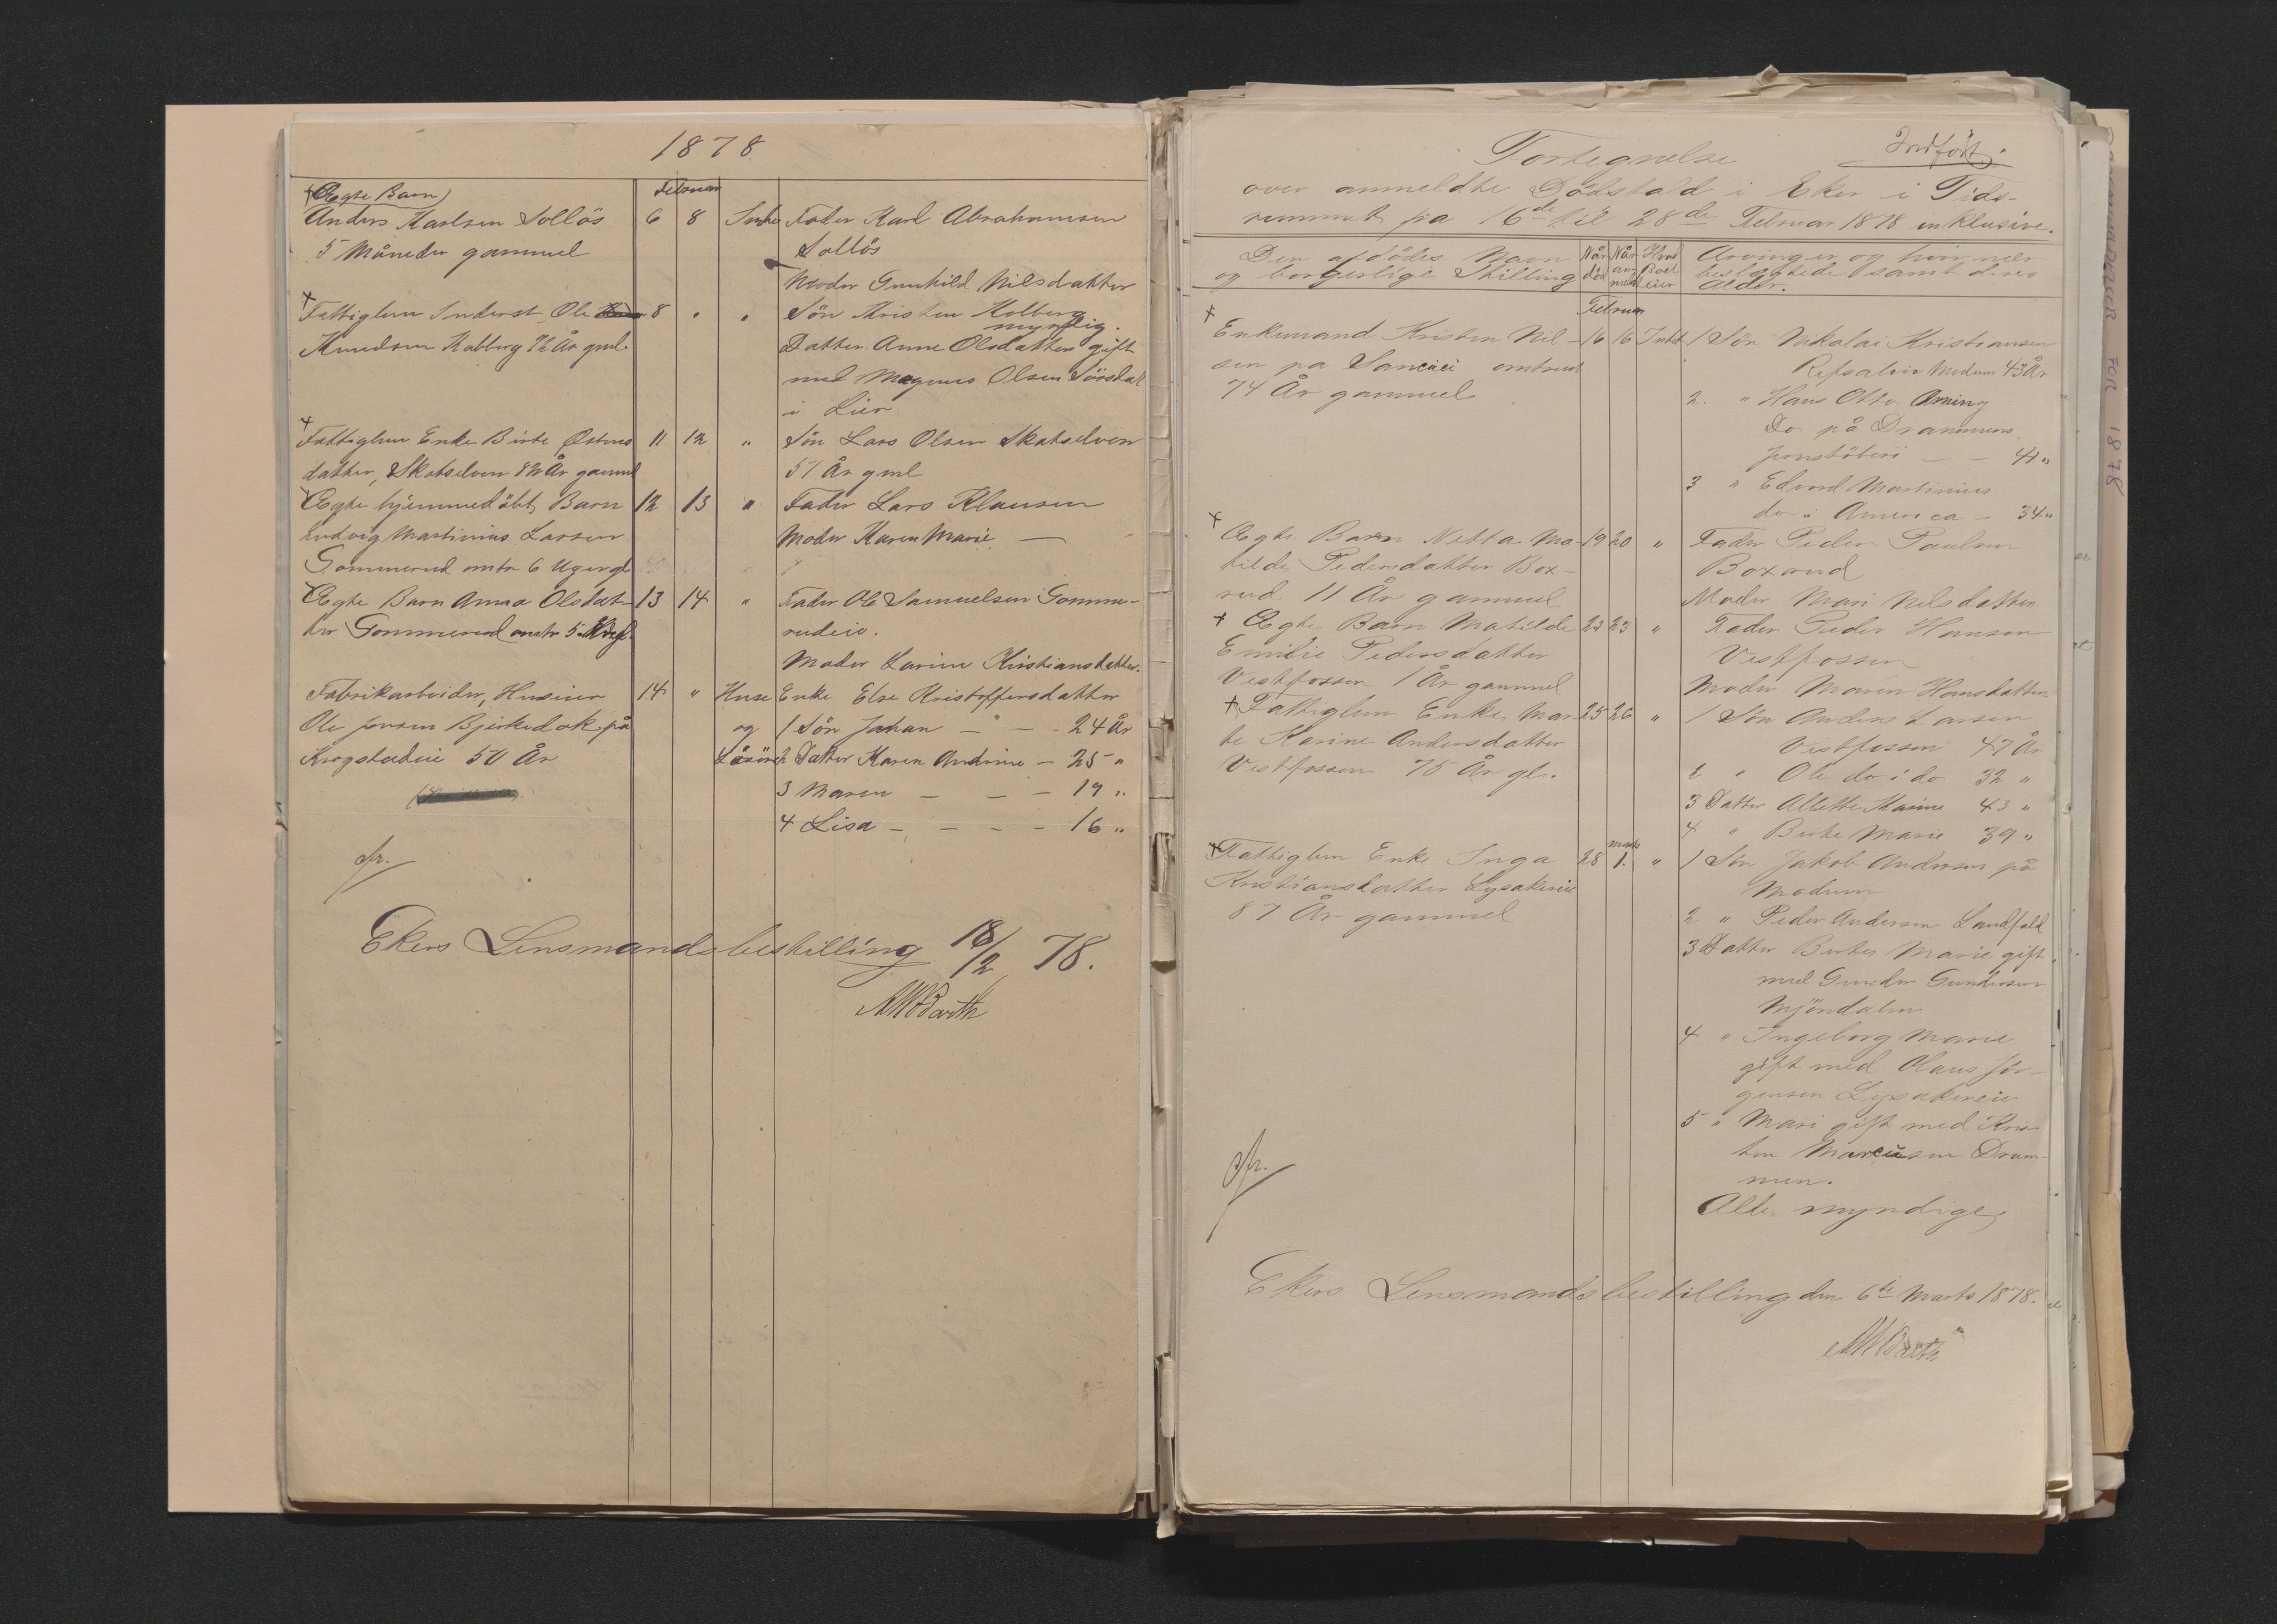 1878
Februar
(Ægte Barn)
Anders Karlsen Solløs 6 8 Fader Karl Abrahamsen
5 Måneder gammel Solløs
Moder Gunhild Nilsdatter
Fattiglem Inderst, Ole 8 " " Søn Kristen Kolberg
myndig.
Knudsen Kolberg År gml. Datter Anne Olsdatter gift
med Magnus Olsen
i Lier
Fattiglem Enke Birte Østens 11 12 " Søn Lars Olsen Skotselven
datter, Skotselven 82 År gammel 51 År gml
Ægte hjemmedøbt Barn 12 13 " Fader Lars Klausen
Ludvig Martinius Larsen Moder Karen Marie —
Gommerud omtr 6 Uger gl
Ægte Barn Anna Olsdat- 13 14 " Fader Ole Samuelsen Gomme-
ter Gommerud omtr 5 rudeie.
Moder Larine Kristiansdatter.
Fabrikarbeider, Huseier 14 " Huse Enke Else Kristoffersdatter
Ole Jensen på og 1 Søn Johan — — - 24 År
Krogstadeie 50 År Løsøre 2 Datter Karen Andrine — 25 "
3 Maren — — — 19 "
4 Lisa — — — — 16 "
Ekers Lensmandsbestilling 16/2 78.
Barth
Indført.
Fortegnelse
over anmeldte Dødsfald i Eker i Tids-
rummet fra 16de til 28de Februar 1878 inklusive.
Den afdødes Navn Når Når Hvad Arvinger og hvor nær
og borgerlige Stilling død an- Boet beslægtede samt deres
meldt eier Alder.
Februar
Enkemand Kristen Nil- 16 16 Intet 1 Søn Nikolai Kristiansen
sen på omtrent Modum 43 År
74 År gammel 2. " Hans Otto
Do på Drammens
Jernstøberi — — 41 "
3 " Edvard Martinius
do i America — 34 "
Ægte Barn Netta Ma- 19 20 " Fader Peder Paulsen
tilde Pedersdatter Box- Boxrud
rud. 11 År gammel Moder Mari Nilsdatter
Ægte Barn Matilde 23 23 " Fader Peder Hansen
Emilie Pedersdatter Vestfossen
Vestfossen 1 År gammel Moder Maren Hansdatter.
Fattiglem Enke Mar- 25 26 " 1 Søn Anders Larsen
te Karine Andersdatter Vestfossen 47 År
Vestfossen 75 År gl. 2 " Ole do i do 32 "
3 Datter Allette Karine 43 "
4 " Berte Marie 39 "
Marts
Fattiglem Enke Inga 28 1. " 1 Søn Jakob Andersen på
Kristiansdatter Lysakereie Modum
87 År gammel
2 " Peder Andersen Landfald
3 Datter Berte Marie gift
med Gunder Gundersen
Mjøndalen
4 " Ingeborg Marie
gift med Olaus Jør-
gensen Lysakereie
5 " Mari gift med Kris-
ten Marcusen Dram-
men.
Alle myndige,
Ekers Lensmandsbestilling den 6te Marts 1878.
Barth
FOR 1878